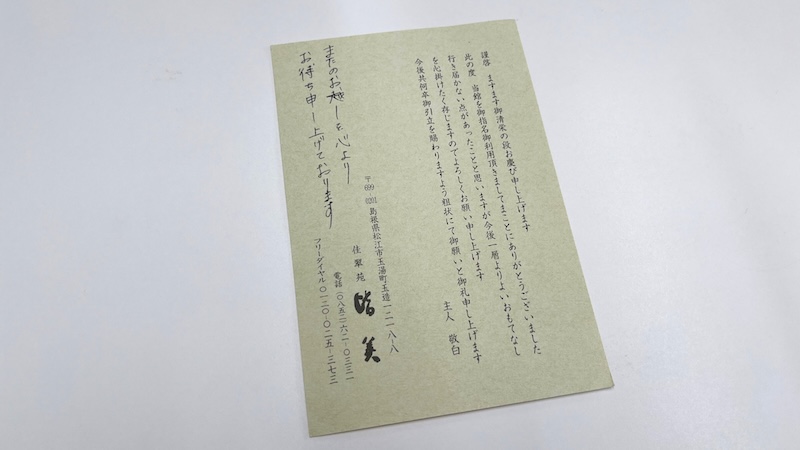 謹啓 ますます御清栄の段お慶び申し上げます
此の度 当館を御指名御利用頂きましてまことにありがとうございました
行き届かない点があったことと思いますが今後一層よりよいおもてなし
を心掛けたく存じますのでよろしくお願い申し上げます
今後共何卒御引立を賜わりますよう粗状にて御願いと御礼申し上げます
主人 敬白
〒699-0201 島根県松江市玉湯町玉造一二一八-八
佳翠苑 皆美
電話(〇八五二)六二-〇三三一
フリーダイヤル〇一二〇-〇二五-三七三
またのお越しを心より
お待ち申し上げております